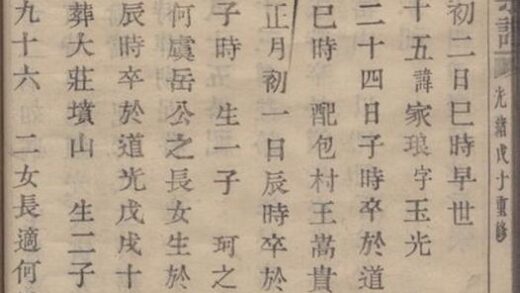 譜 光緒戊重修
初二日巳時早世
十五諱家琅字玉光
二十四日子時卒於道
巳時 配包村王嵩貴
正月初一日辰時卒於
子時 生一子 珂之
何虞岳公之長女生於
辰時卒於道光戊戌十
葬大莊墳山 生二子
九十六 二女長適何